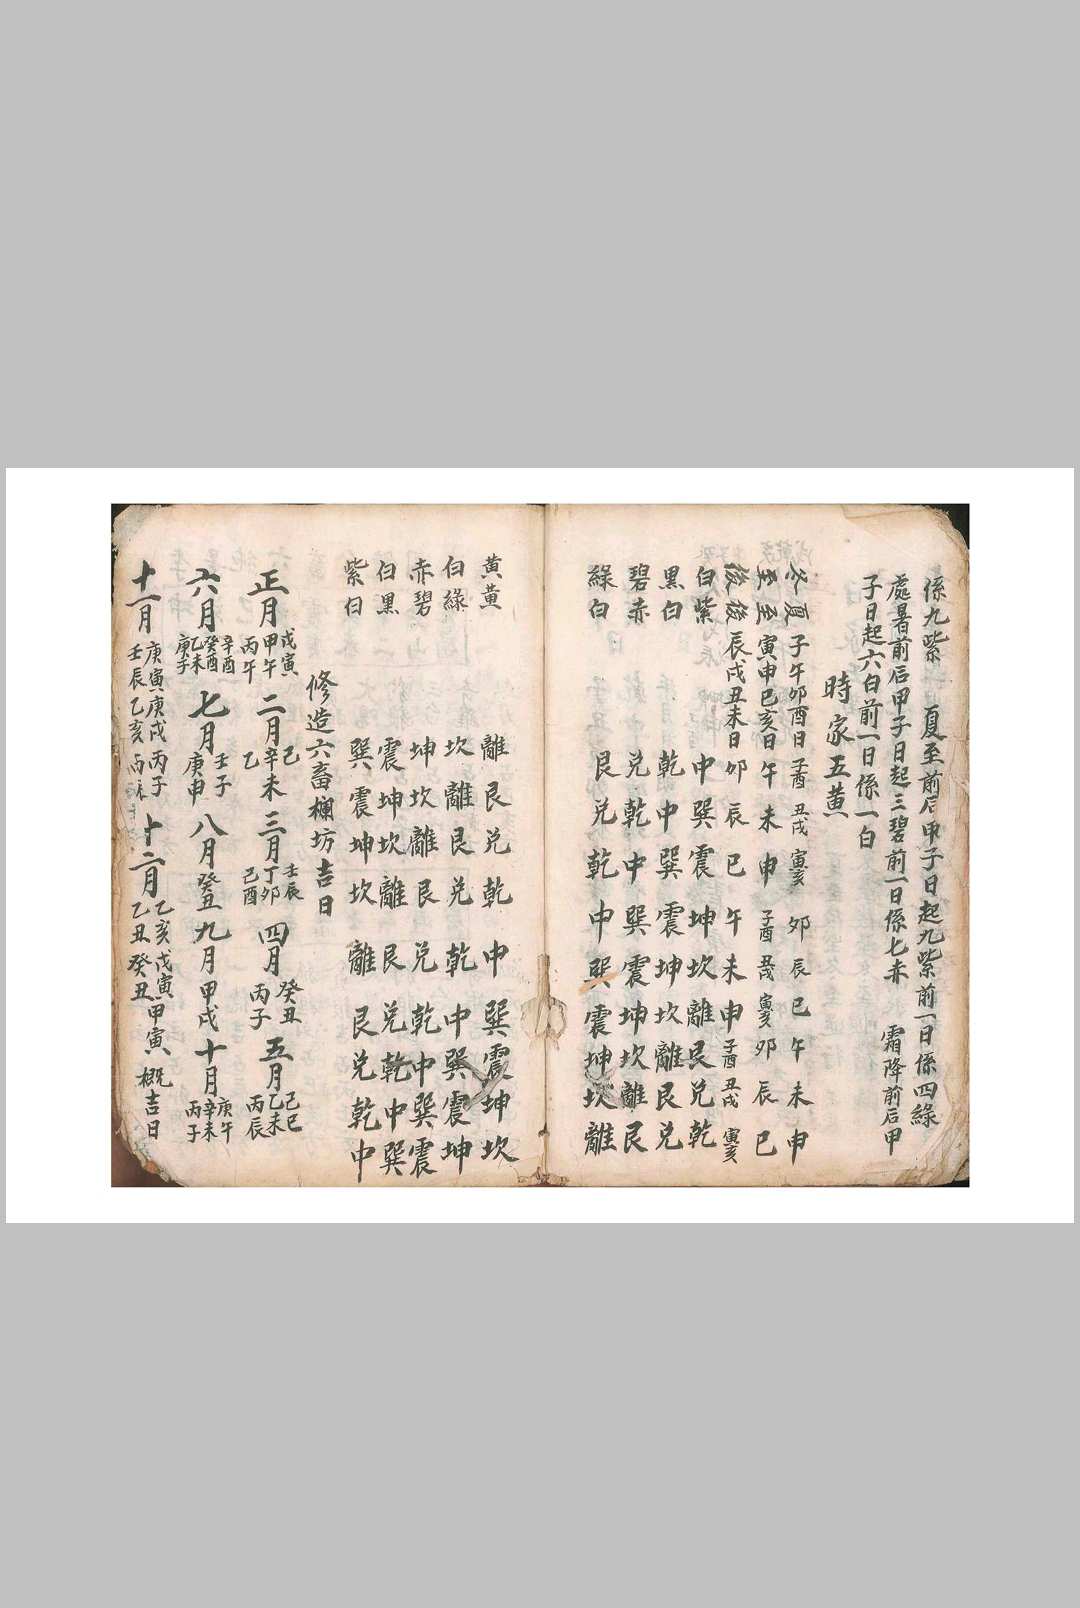 係九紫 夏至前后甲子日起九紫前一日係四綠
處暑前后甲子日起三碧前一日係七赤 霜降前后甲
子日起六白前一日係一白
時家五黄
冬夏 子午卯酉日 子酉 丑戌 寅亥 卯 辰 巳 午 未 申
至至 寅申巳亥日 午 未 申 子酉 丑戌 寅亥 卯 辰 巳
後後 辰戌丑未日 卯 辰 巳 午 未 申 子酉 丑戌 寅亥
白紫 中巽震坤坎離艮兑乾
黑白 乾中巽震坤坎離艮兑
碧赤 兑乾中巽震坤坎離艮
綠白 艮兑乾中巽震坤坎離
黄黄 離艮兑乾中巽震坤坎
白綠 坎離艮兑乾中巽震坤
赤碧 坤坎離艮兑乾中巽震
白黑 震坤坎離艮兑乾中巽
紫白 巽震坤坎離艮兑乾中
修造六畜欄坊吉日
正月 戊寅 甲午 丙午 二月 己 辛未 乙 三月 壬辰 丁卯 己酉 四月 癸丑 丙子 五月 己巳 乙未 丙辰
六月 辛酉 癸酉 乙未 庚子 七月 壬子 庚申 八月 癸丑 九月 甲戌 十月 庚午 辛未 丙子
十一月 庚寅 庚戌 丙子 壬辰 乙亥 丙 十二月 乙亥 戊寅 甲寅 乙丑 癸丑 概吉日